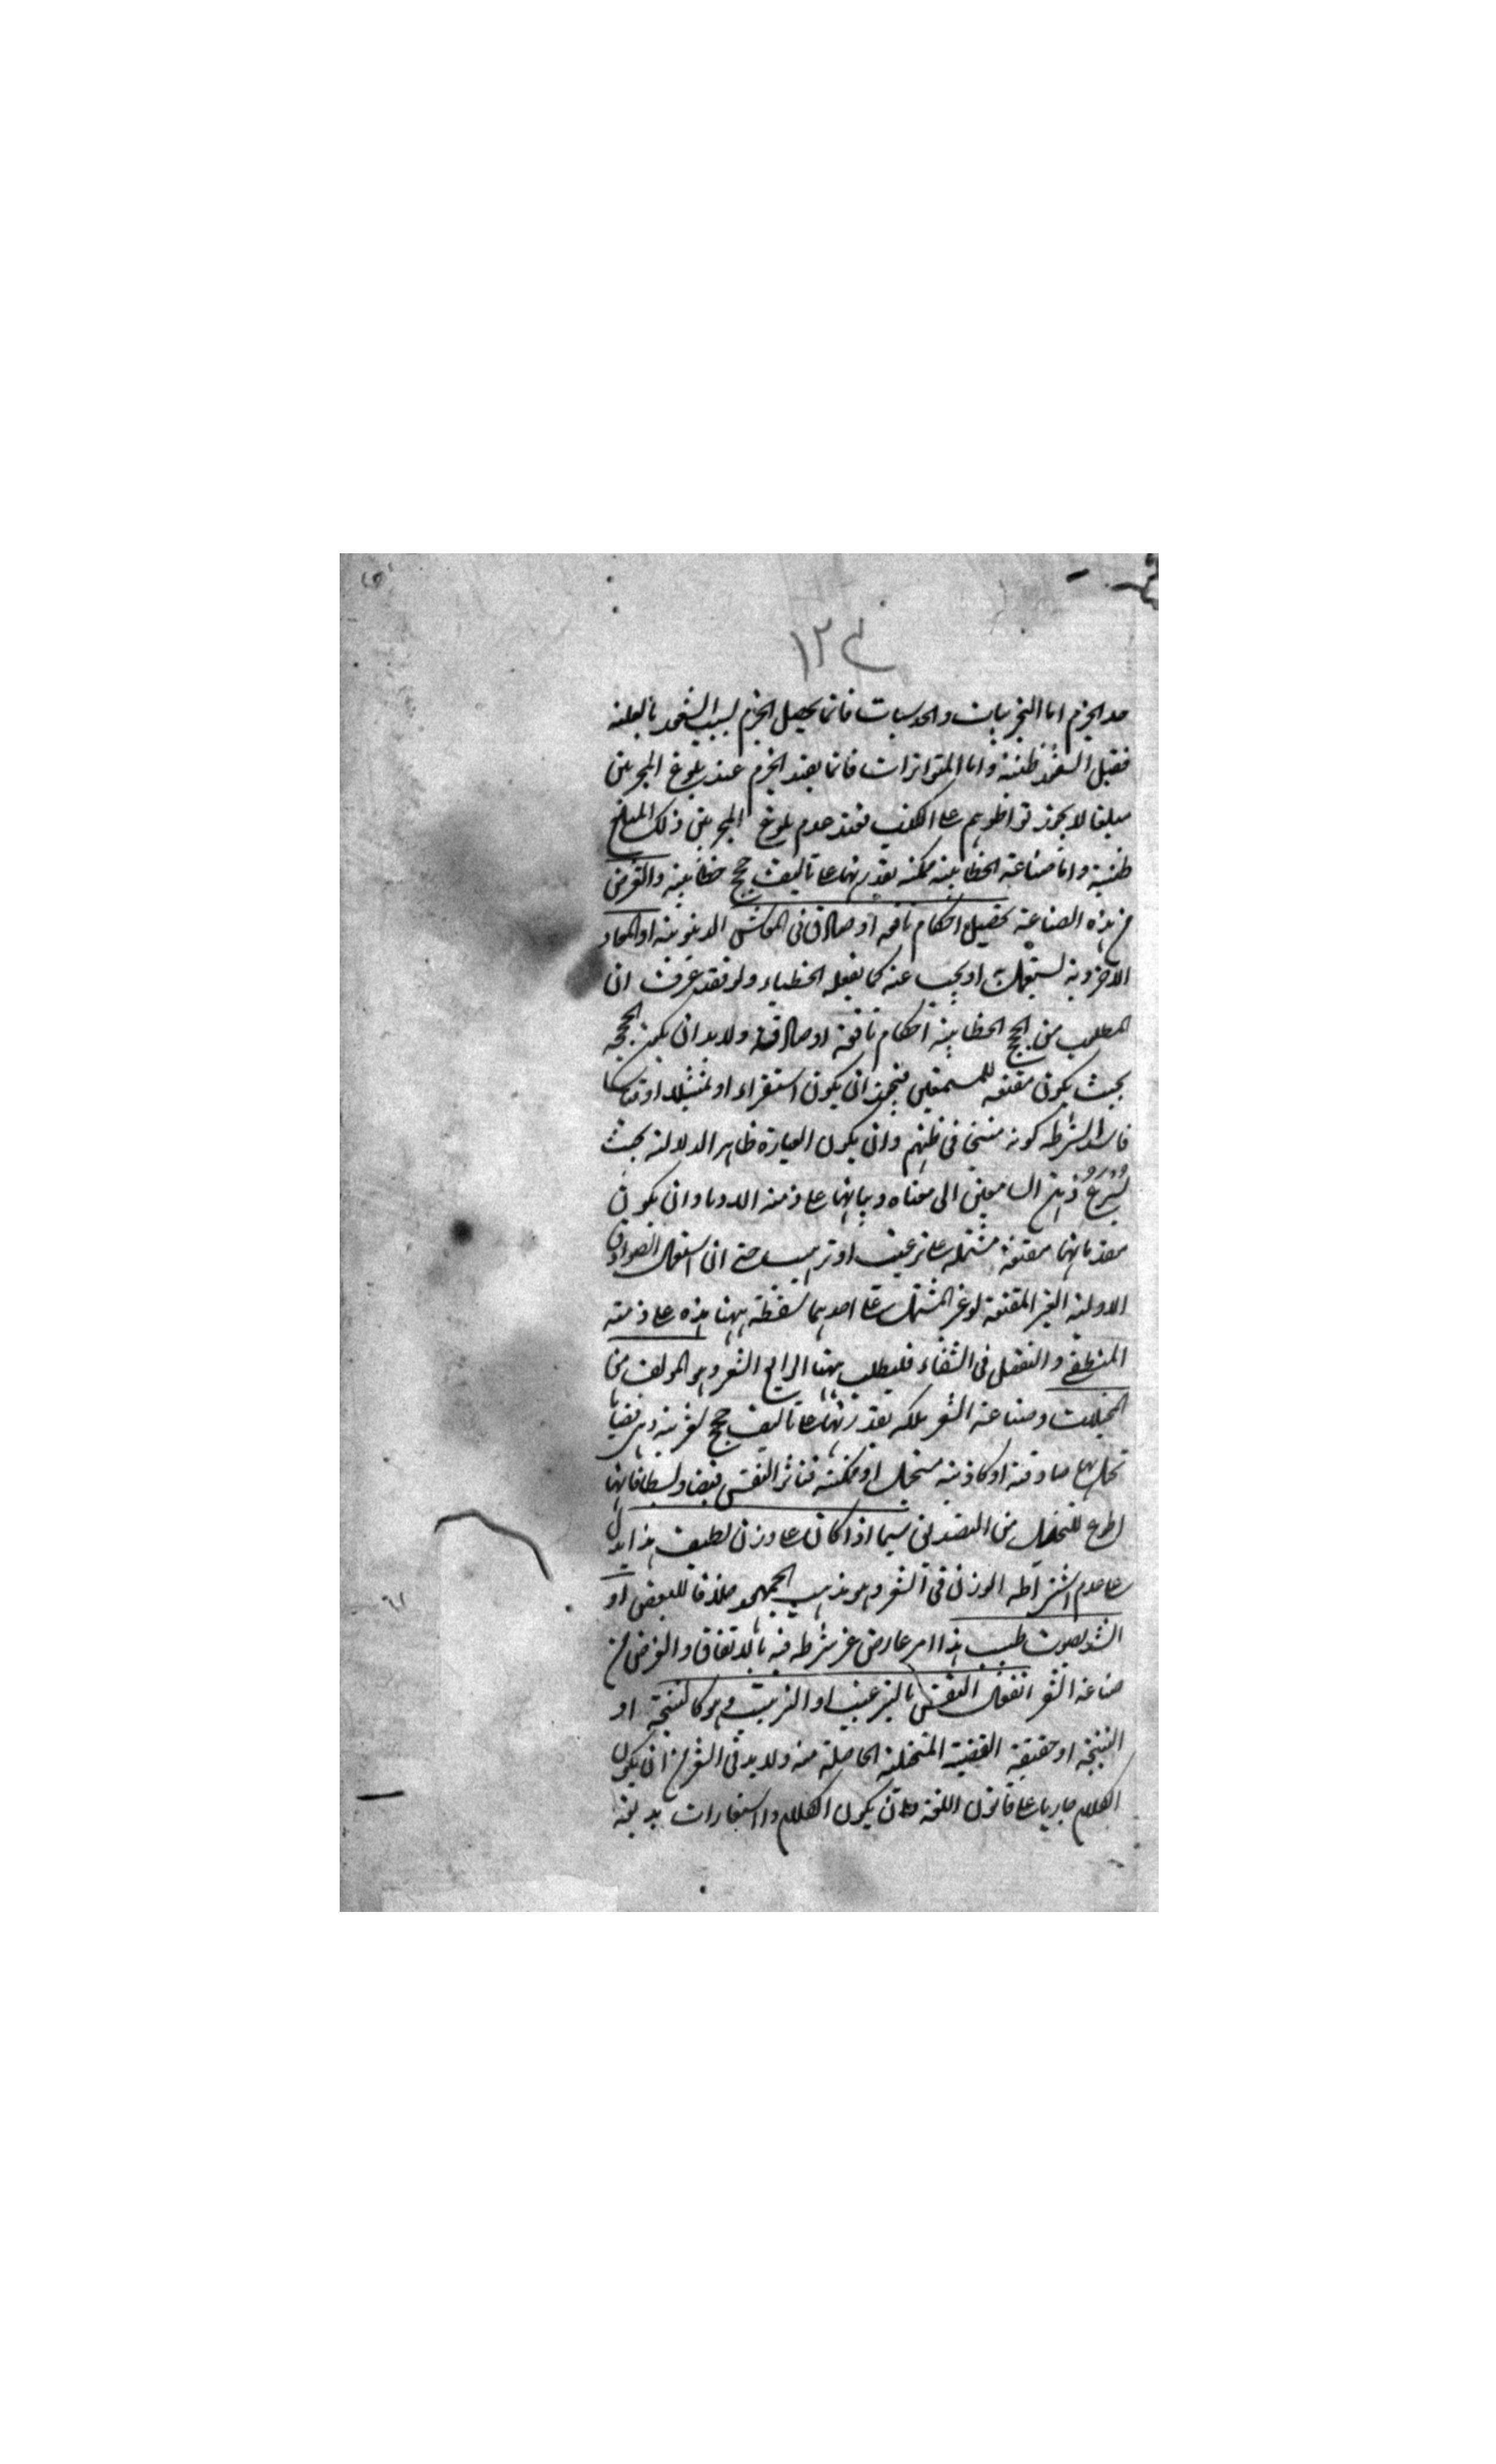 ١٢٤
حد الجزم اما التجربيات والحدسيات فانما يحصل الجزم بسبب الشعور بالعلة
فقبل الشعور ظنية واما المتواترات فانما يفيد الجزم عند بلوغ المخبرين
مبلغا لا يجوز تواطؤهم على الكذب فعند عدم بلوغ المخبرين ذلك المبلغ
ظنية واما صناعة الخطابية ملكة يقدر بها على تاليف حجج خطابية والغرض
من هذه الصناعة تحصيل احكام نافعة او صارة في المعاش الدنيوية او المعاد
الاخروية ليستعمل او يجتنب عنه كما يفعله الخطباء ولو فقد عرفت ان
المطلوب من الحجج الخطابية احكام نافعة او صارة ولا بد ان يكون الحجة
بحيث يكون مقنعة للمستمعين فيجوز ان يكون استقراء او تمثيلا او قياسا
فاسدا لشرطه كونه منتجا في ظنهم وان يكون العبارة ظاهر الدلالة بحيث
يسرع ذهن السامعين الى معناه وبيانها على ذمة الادباء وان يكون
مقدماتها مقنعة مشتملة على ترغيب او ترهيب حتى ان استعمال الصوادق
الاولية الغير المقنعة او غير المشتمل على احدهما سفظة ههنا هذه على ذمة
المنطقي والتفصيل في الشفاء فليطلب ههنا الرابع الشعر وهو المولف من
المخيلات وصناعة الشعر ملكة يقدر بها على تاليف حجج شعرية وهي قضايا
تخيل بها صادقة او كاذبة مستحيل او ممكنة فتتاثر النفس قبضا وبسطا فانها
اطوع للتخيل من التصديق سيما اذا كان على وزن لطيف هذا يدل
على عدم اشتراط الوزن في الشعر وهو مذهب الجمهور خلافا للبعض او
انشد بصوت طيب هذا امر عارض غير شرط فيه بالاتفاق والغرض من
صناعة الشعر انفعال النفس بالترغيب او الترهيب وهو كالنتيجة او
النتيجة او حقيقة القضية المتخيلة الحاصلة منه ولا بد في الشعر من ان يكون
الكلام جاريا على قانون اللغة وان يكون الكلام واستعارات بديعة